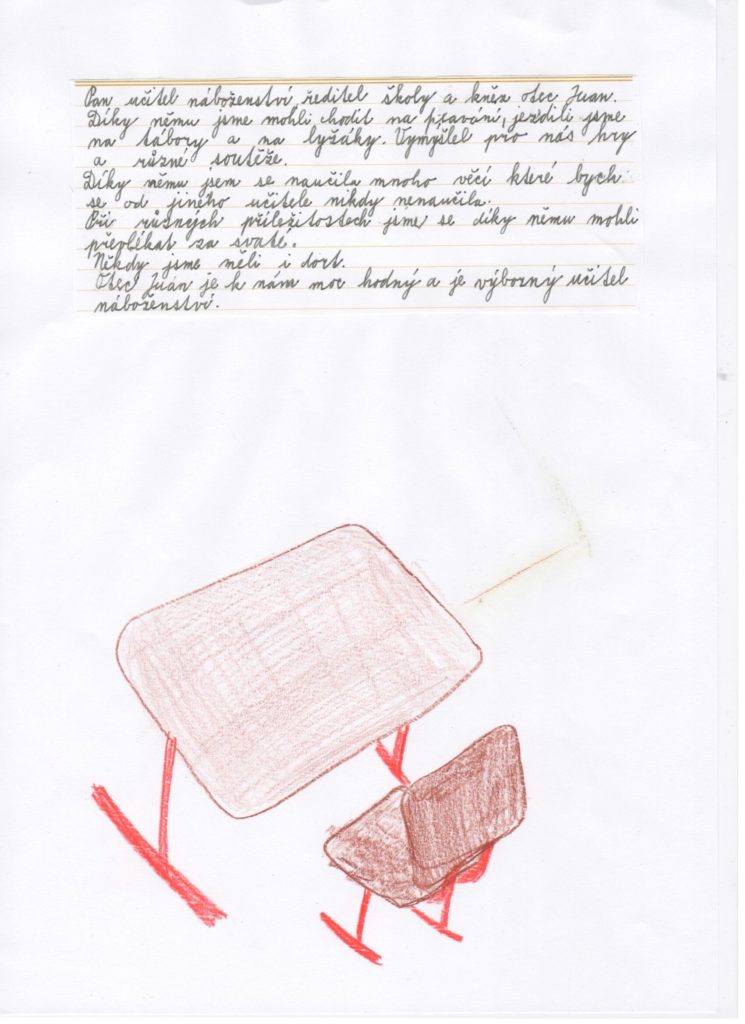 Pan učitel náboženství, ředitel školy a kněz otec Juan.
Díky němu jsme mohli chodit na plavání, jezdili jsme
na tábory a na lyžáky. Vymýšlel pro nás hry
a různé soutěže.
Díky němu jsem se naučila mnoho věcí které bych
se od jiného učitele nikdy nenaučila.
Při různých příležitostech jsme se díky němu mohli
převlékat za svaté.
Někdy jsme měli i dort.
Otec Juan je k nám moc hodný a je výborný učitel
náboženství.